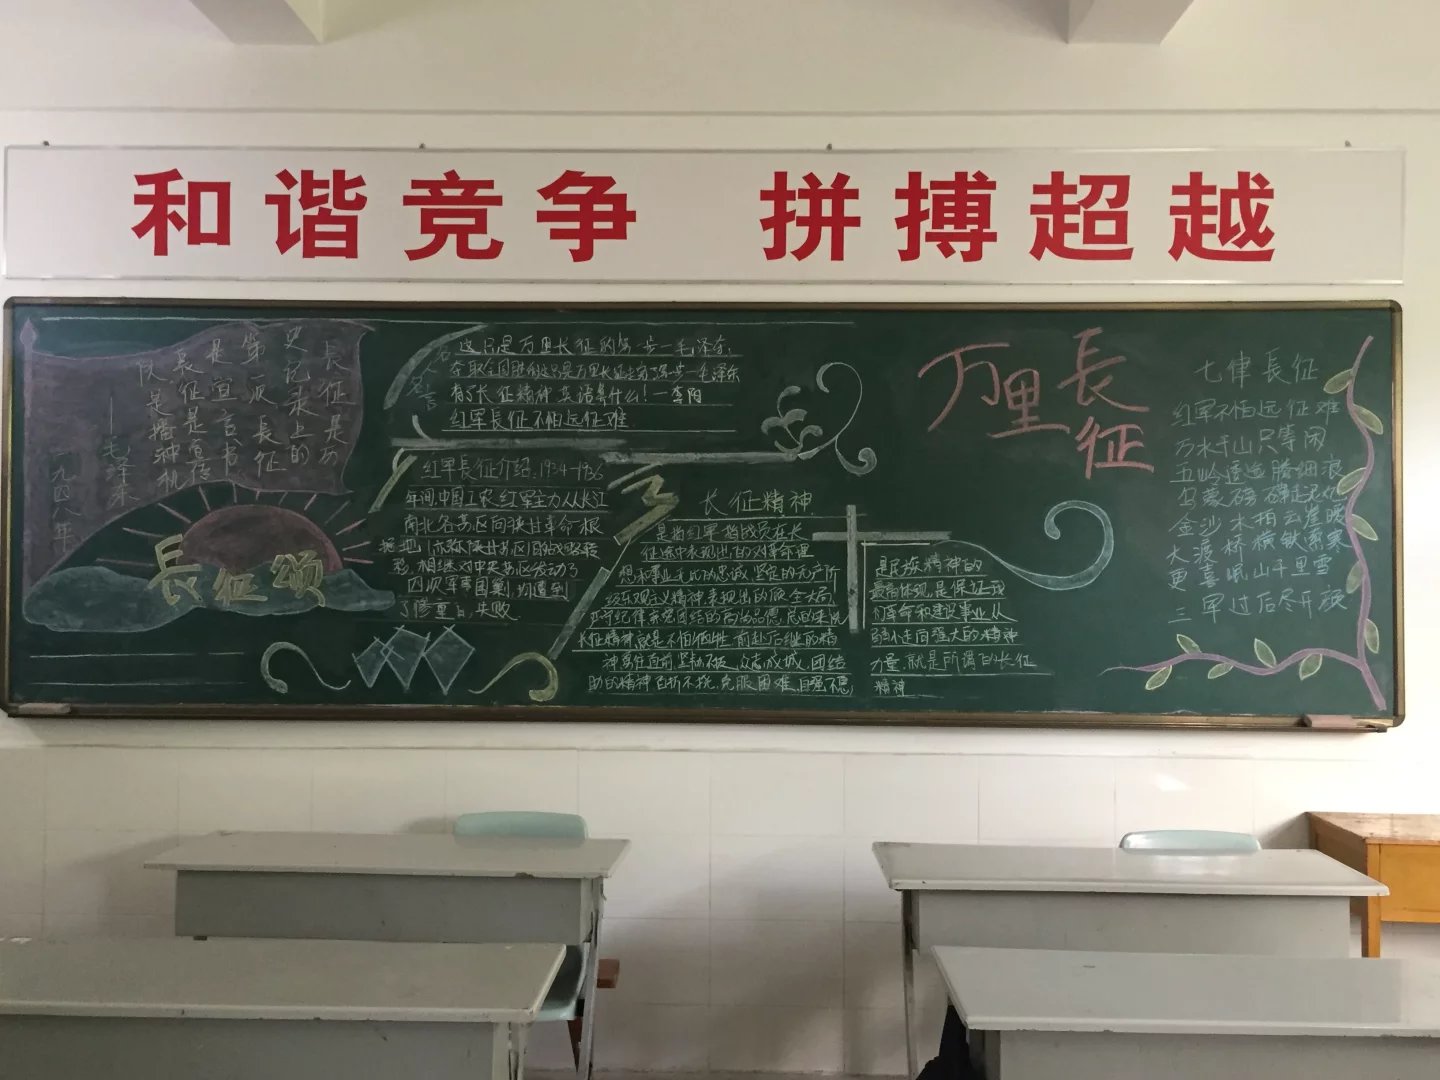 和谐竞争 拼搏超越
長征是历
史记录上的
第一次長征
是宣言书
長征是宣传
队是播种机
——毛泽东
一九四八年
長征颂
名人名言
这只是万里长征的第一步一毛泽东
夺取全国胜利这只是万里长征走完了第一步一毛泽东
有了长征精神英语算什么!一李阳
红军長征不怕远征难
红军長征介绍:1934-1936
年间,中国工农红军主力从长江
南北各苏区向陕甘革命根
据地(亦称陕甘苏区)的战略转
移,相继对中央苏区发动了
四次军事围剿,均遭到
了惨重的失败
长征精神
是指红军指战员在长
征途中表现出的对革命理
想和事业无比的忠诚,坚定的无产阶
级乐观主义精神表现出的顾全大局
严守纪律亲密团结的高尚品德,总的来说
长征精神就是不怕牺牲前赴后继的精
神勇往直前,坚韧不拔,众志成城,团结
助的精神百折不挠,克服困难,自强不息
是民族精神的
最高体现,是保证我
们革命和建设事业从
弱小走向强大的精神
力量,就是所谓的长征
精神
万里長征
七律長征
红军不怕远征难
万水千山只等闲
五岭逶迤腾细浪
乌蒙磅礴走泥丸
金沙水拍云崖暖
大渡桥横铁索寒
更喜岷山千里雪
三军过后尽开颜